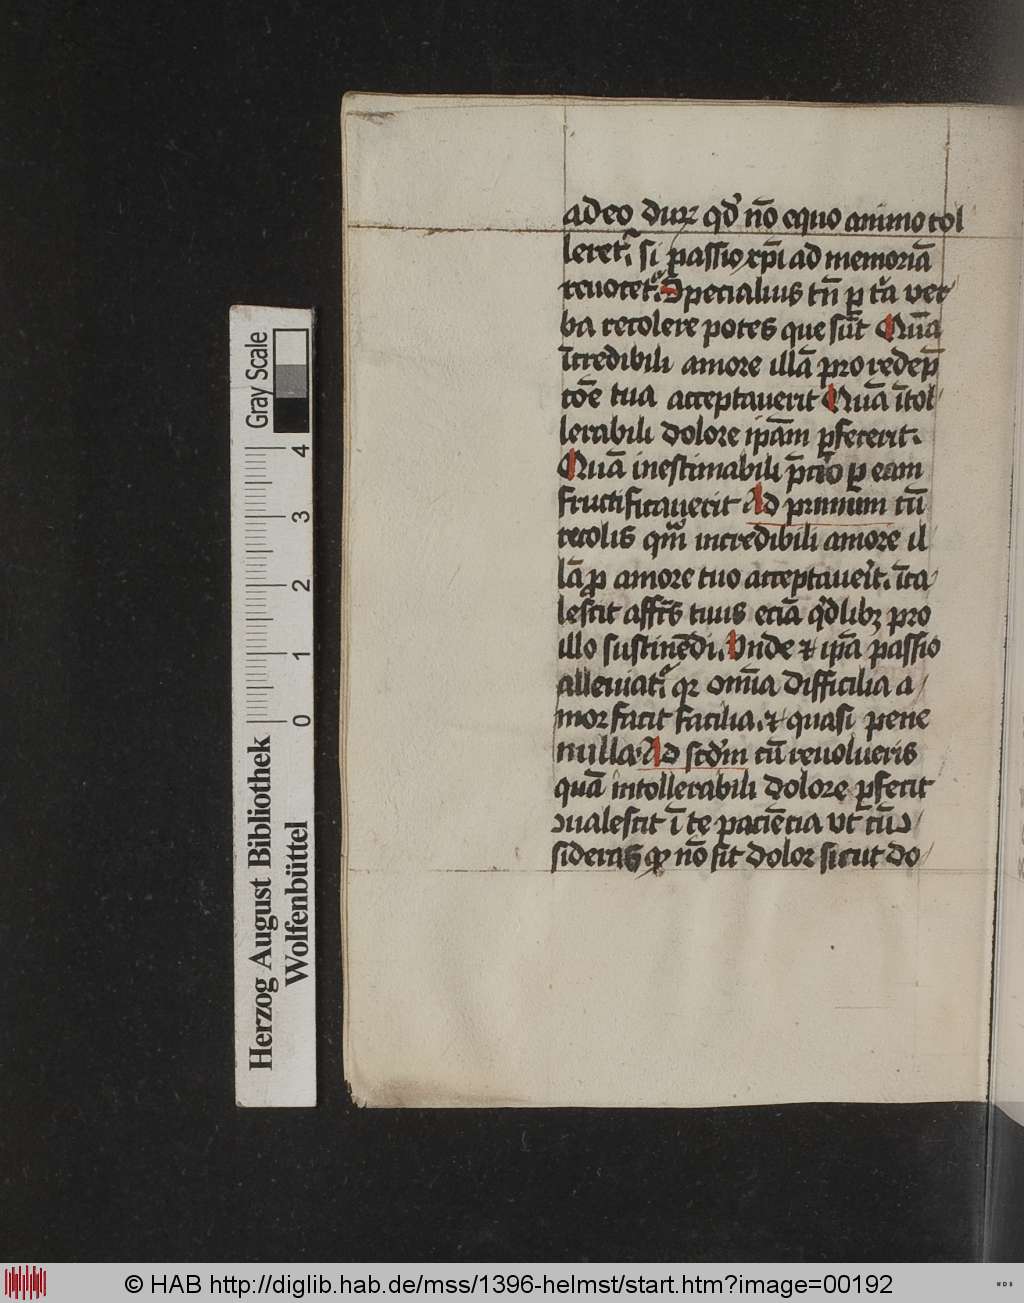 adeo durꝝ qd̕ nō equo animo tol
leret᷑ si passio xp̄i ad memoriā
reuocet᷑ Specialius tn̄ ꝑ t͛a ver
ba recolere potes que sūt Quā
īcredibili amore illā pro redēp
cōe tua acceptauerit Quā ītol
lerabili dolore ipām ꝑfecerit.
Quā inestimabili p̄cio ꝑ eam
fructificauerit Ad primum cū
recolis qm̄ incredibili amore il
lā ꝓ amore tuo acceptauerit. īca
lescit affc̄s tuus eciā qd̕libꝫ pro
illo sustinēdi. Unde ⁊ ip̄a passio
alleuiat᷑ qꝛ omīa difficilia a
mor facit facilia. ⁊ quasi pene
nulla. Ad scd̕m cū reuolueris
quā intollerabili dolore ꝑfecit
ↄualescit ī te paciēcia vt̄ cūↄ
sideras ꝙ nō sit dolor sicut do
Gray Scale
4
3
2
1
0
Herzog August Bibliothek
Wolfenbüttel
© HAB http://diglib.hab.de/mss/1396-helmst/start.htm?image=00192
WDB